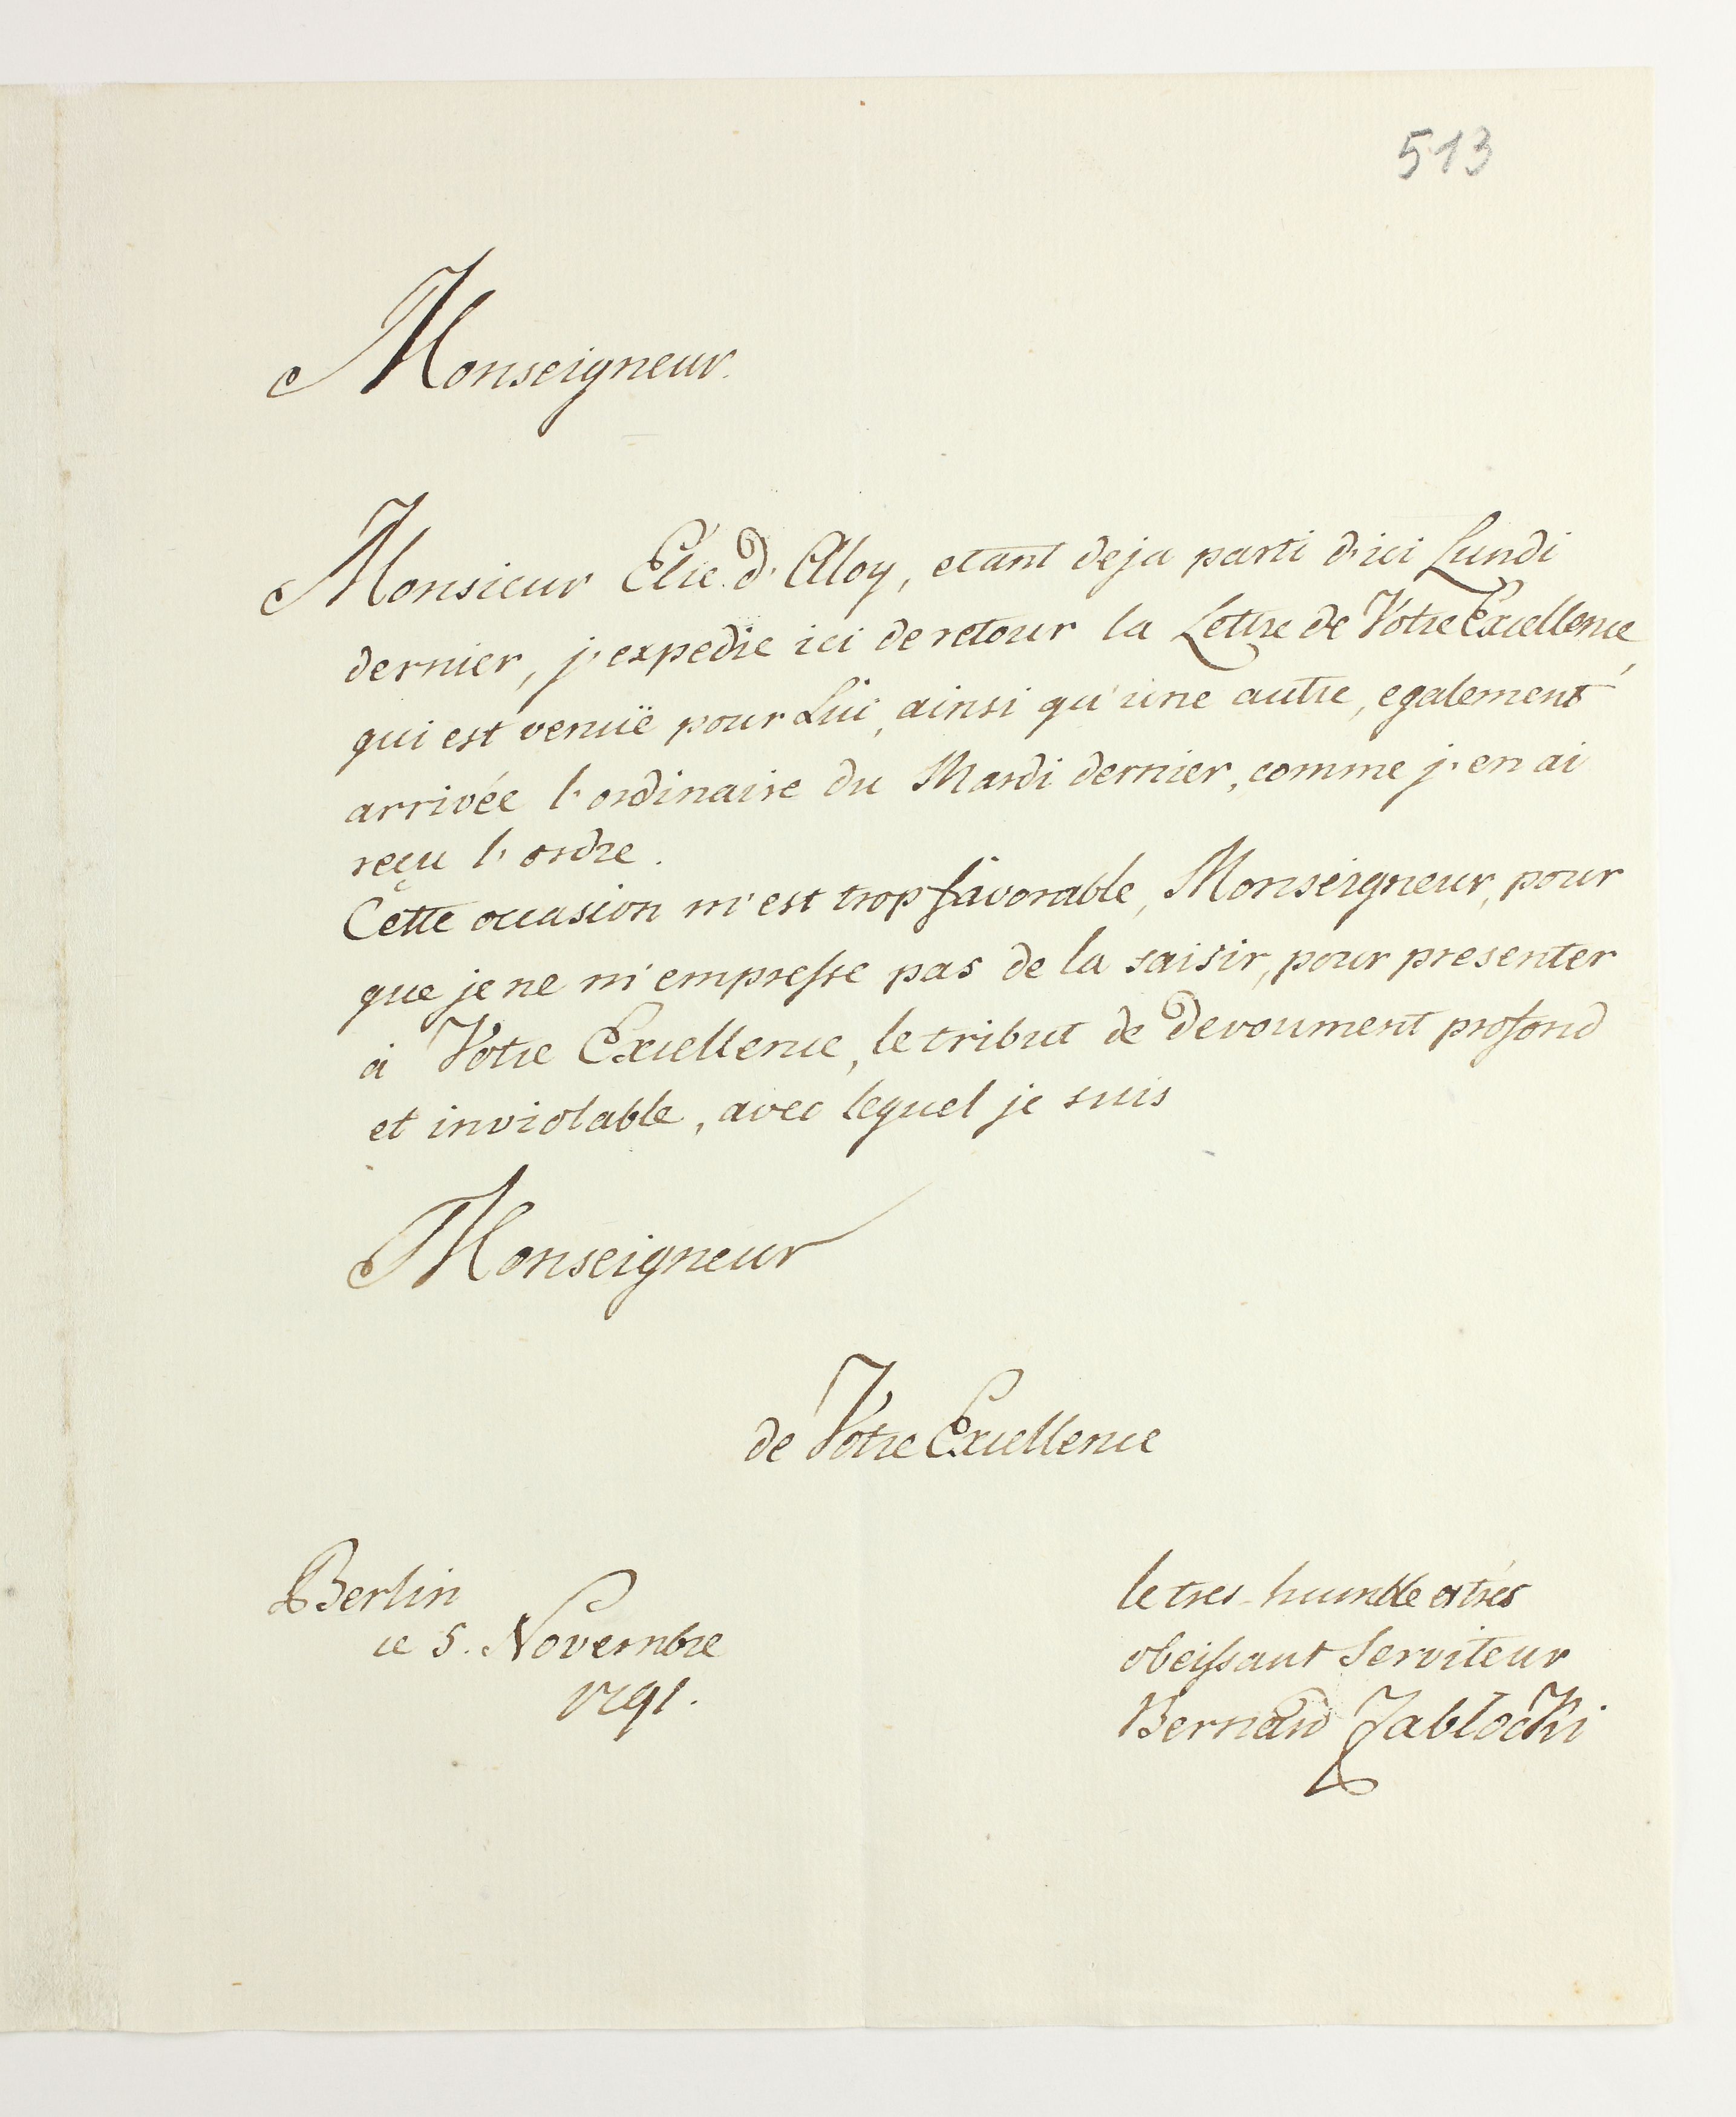 513
Monseigneur.
Monsieur Elie d'Aloy, etant deja parti d'ici Lundi
dernier, j'expedie ici de retour la Lettre de Votre Excellence,
qui est venuë pour Lui, ainsi qu'une autre, egalement
arrivée l'ordinaire du Mardi dernier, comme j'en ai
reçu l'ordre.
Cette occasion m'est trop favorable, Monseigneur, pour
que je ne m'empresse pas de la saisir, pour presenter
à Votre Excellence, le tribut de devoument profond
et inviolable, avec lequel je suis
Monseigneur
de Votre Excellence
Berlin
ce 5. Novembre
1791.
le tres-humble et très
obeissant Serviteur
Bernard Zabłocki